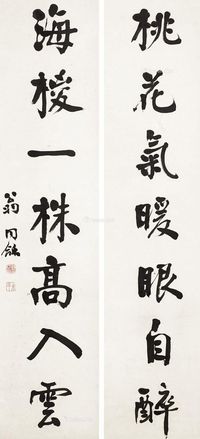 桃花氣暖眼自醉
海椶一株高入雲
翁同龢